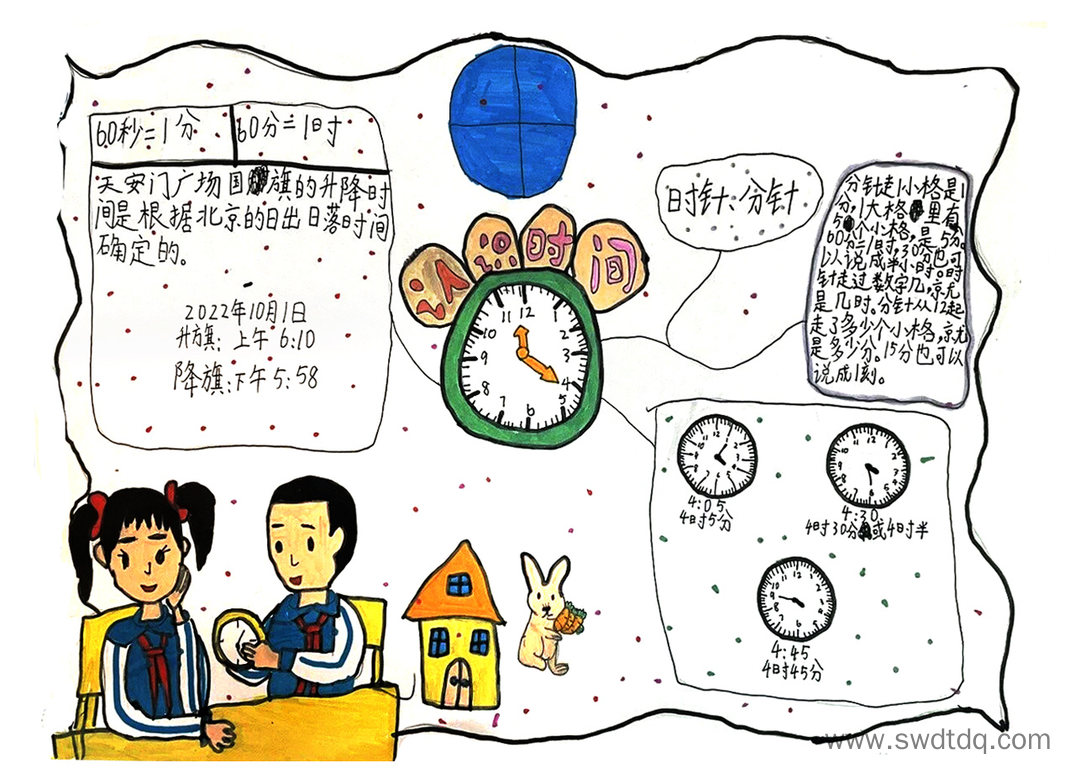 60秒=1分
60分=1时
天安门广场国旗的升降时
间是根据北京的日出日落时间
确定的。
2022年10月1日
升旗:上午6:10
降旗:下午5:58
认识时间
12
11 1
10 2
9 3
8 4
7 5
6
时针、分针
分针走1小格是1
分,1大格里有
5个小格,是5分。
60分=小时,30分也可
以说成半小时。时
针走过数字几。就
是几时。分针从12起
走了多少个小格,就
是多少分。15分也可以
说成1刻。
4:05
4时5分
4:30
4时30分或4时半
4:45
4时45分
www.swdtdq.com